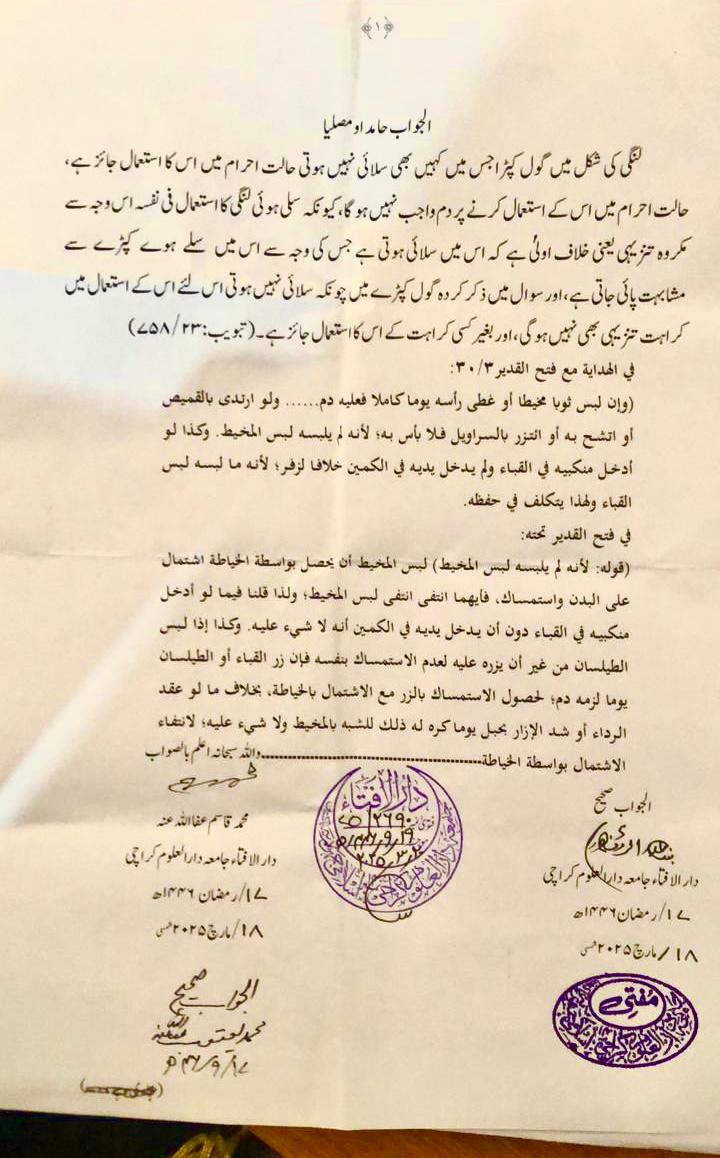 ﴿۱﴾
الجواب حامدا و مصلیا
لنگی کی شکل میں گول کپڑا جس میں کہیں بھی سلائی نہیں ہوتی حالت احرام میں اس کا استعمال جائز ہے،
حالت احرام میں اس کے استعمال کرنے پر دم واجب نہیں ہوگا، کیونکہ سلی ہوئی لنگی کا استعمال فی نفسہ اس وجہ سے
مکروہ تنزیہی یعنی خلاف اولیٰ ہے کہ اس میں سلائی ہوتی ہے جس کی وجہ سے اس میں سلے ہوے کپڑے سے
مشابہت پائی جاتی ہے، اور سوال میں ذکر کردہ گول کپڑے میں چونکہ سلائی نہیں ہوتی اس لئے اس کے استعمال میں
کراہت تنزیہی بھی نہیں ہوگی، اور بغیر کسی کراہت کے اس کا استعمال جائز ہے۔ (تبویب: ۷۵۸/۲۳)
في الهداية مع فتح القدير ۳۰/۳:
(وإن لبس ثوبا مخيطا أو غطى رأسه يوما كاملا فعليه دم...... ولو ارتدى بالقميص
أو اتشح به أو ائتزر بالسراويل فلا بأس به؛ لأنه لم يلبسه لبس المخيط. وكذا لو
أدخل منكبيه في القباء ولم يدخل يديه في الكمين خلافا لزفر؛ لأنه ما لبسه لبس
القباء ولهذا يتكلف في حفظه.
في فتح القدير تحته:
(قوله: لأنه لم يلبسه لبس المخيط) لبس المخيط أن يحصل بواسطة الخياطة اشتمال
على البدن واستمساك، فأيهما انتفى انتفى لبس المخيط؛ ولذا قلنا فيما لو أدخل
منكبيه في القباء دون أن يدخل يديه في الكمين أنه لا شيء عليه. وكذا إذا لبس
الطيلسان من غير أن يزره عليه لعدم الاستمساك بنفسه فإن زر القباء أو الطيلسان
يوما لزمه دم؛ لحصول الاستمساك بالزر مع الاشتمال بالخياطة، بخلاف ما لو عقد
الرداء أو شد الإزار بحبل يوما كره له ذلك للشبه بالمخيط ولا شيء عليه؛ لانتفاء
الاشتمال بواسطة الخياطة....................واللہ سبحانہ اعلم بالصواب
محمد قاسم عفا اللہ عنہ
دار الافتاء جامعہ دار العلوم کراچی
۱۷/رمضان ۱۴۴۶ھ
۱۸/مارچ ۲۰۲۵
دار الافتاء
الجواب صحیح
دار الافتاء جامعہ دار العلوم کراچی
۱۷/رمضان ۱۴۴۶ھ
۱۸/مارچ ۲۰۲۵
مفتی
الجواب صحیح